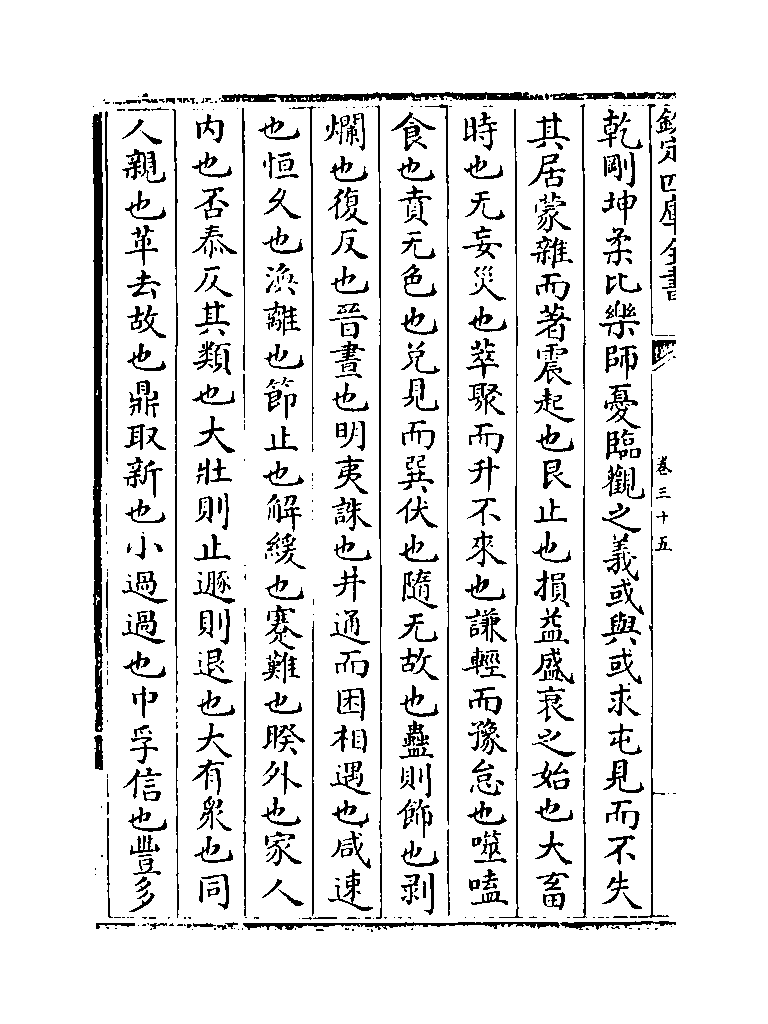 欽定四庫全書
卷三十五
乾剛坤柔比樂師憂臨觀之義或與或求屯見而不失
其居蒙雜而著震起也艮止也損益盛衰之始也大畜
時也无妄災也萃聚而升不來也謙輕而豫怠也噬嗑
食也賁无色也兌見而巽伏也隨无故也蠱則飾也剥
爛也復反也晉晝也明夷誅也井通而困相遇也咸速
也恒久也渙離也節止也解緩也蹇難也睽外也家人
内也否泰反其類也大壯則止遯則退也大有衆也同
人親也革去故也鼎取新也小過過也中孚信也豐多